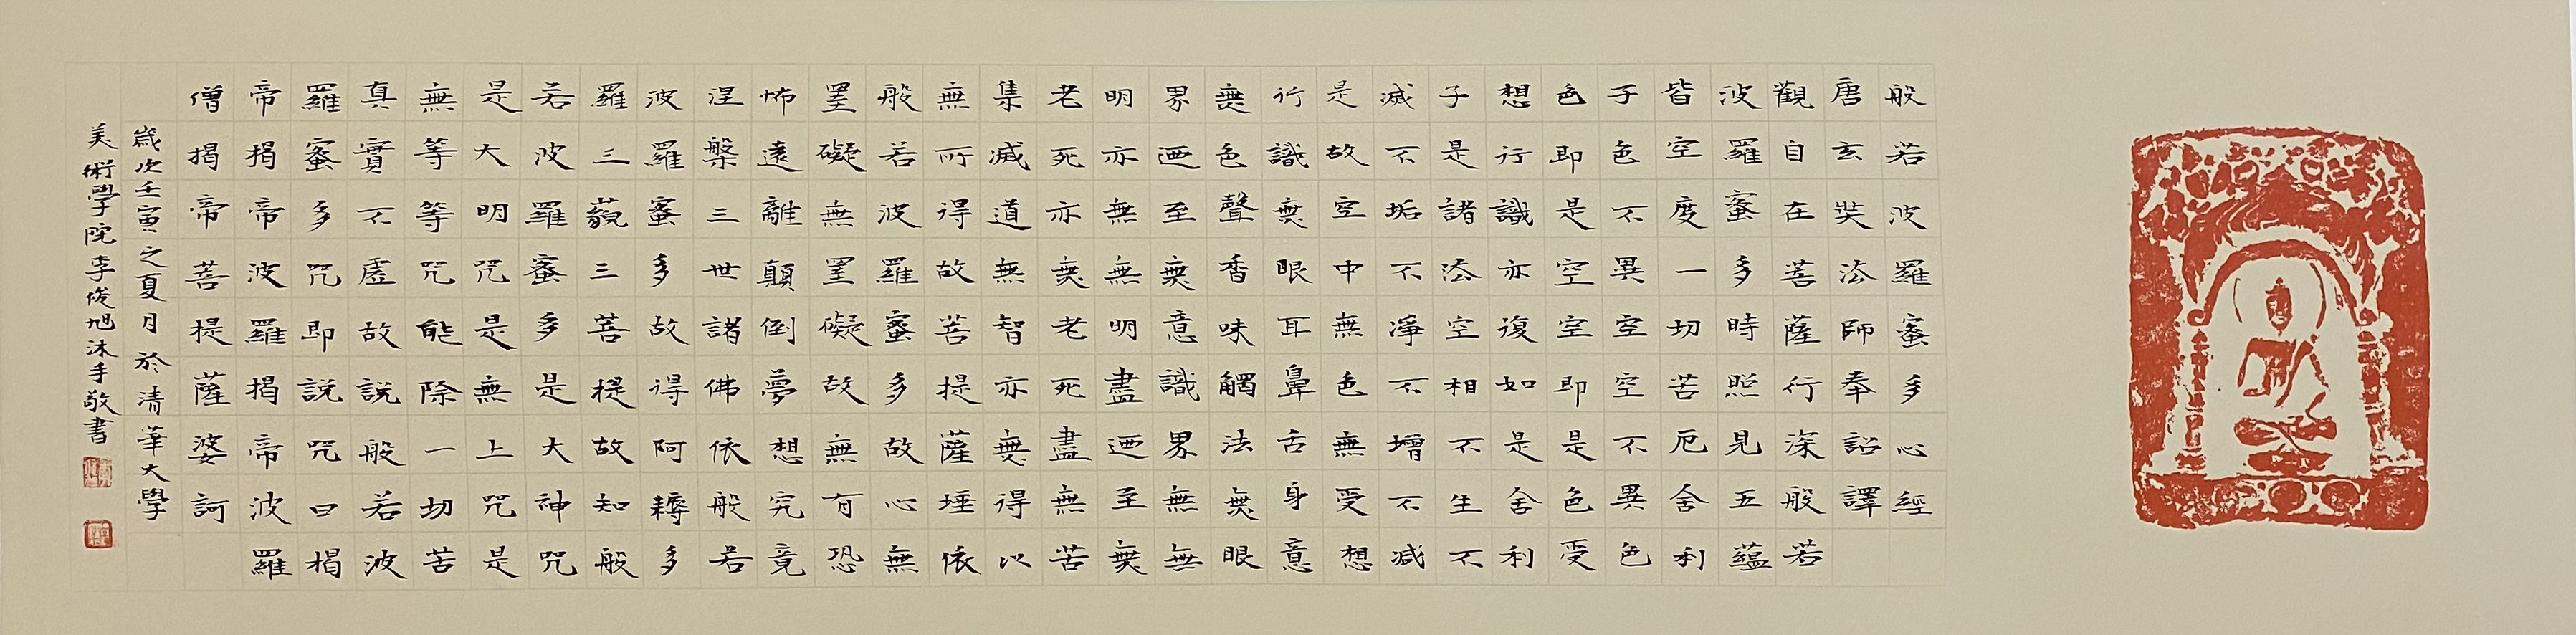 般若波羅蜜多心經
唐玄奘法師奉詔譯
觀自在菩薩行深般若
波羅蜜多時照見五蘊
皆空度一切苦厄舍利
子色不異空空不異色
色即是空空即是色受
想行識亦復如是舍利
子是諸法空相不生不
滅不垢不淨不增不減
是故空中無色無受想
行識無眼耳鼻舌身意
無色聲香味觸法無眼
界迺至無意識界無無
明亦無無明盡迺至無
老死亦無老死盡無苦
集滅道無智亦無得以
無所得故菩提薩埵依
般若波羅蜜多故心無
罣礙無罣礙故無有恐
怖遠離顛倒夢想究竟
涅槃三世諸佛依般若
波羅蜜多故得阿耨多
羅三藐三菩提故知般
若波羅蜜多是大神咒
是大明咒是無上咒是
無等等咒能除一切苦
真實不虛故說般若波
羅蜜多咒即說咒曰揭
帝揭帝波羅揭帝波羅
僧揭帝菩提薩婆訶
歲次壬寅之夏月於清華大學
美術學院李俊旭沐手敬書